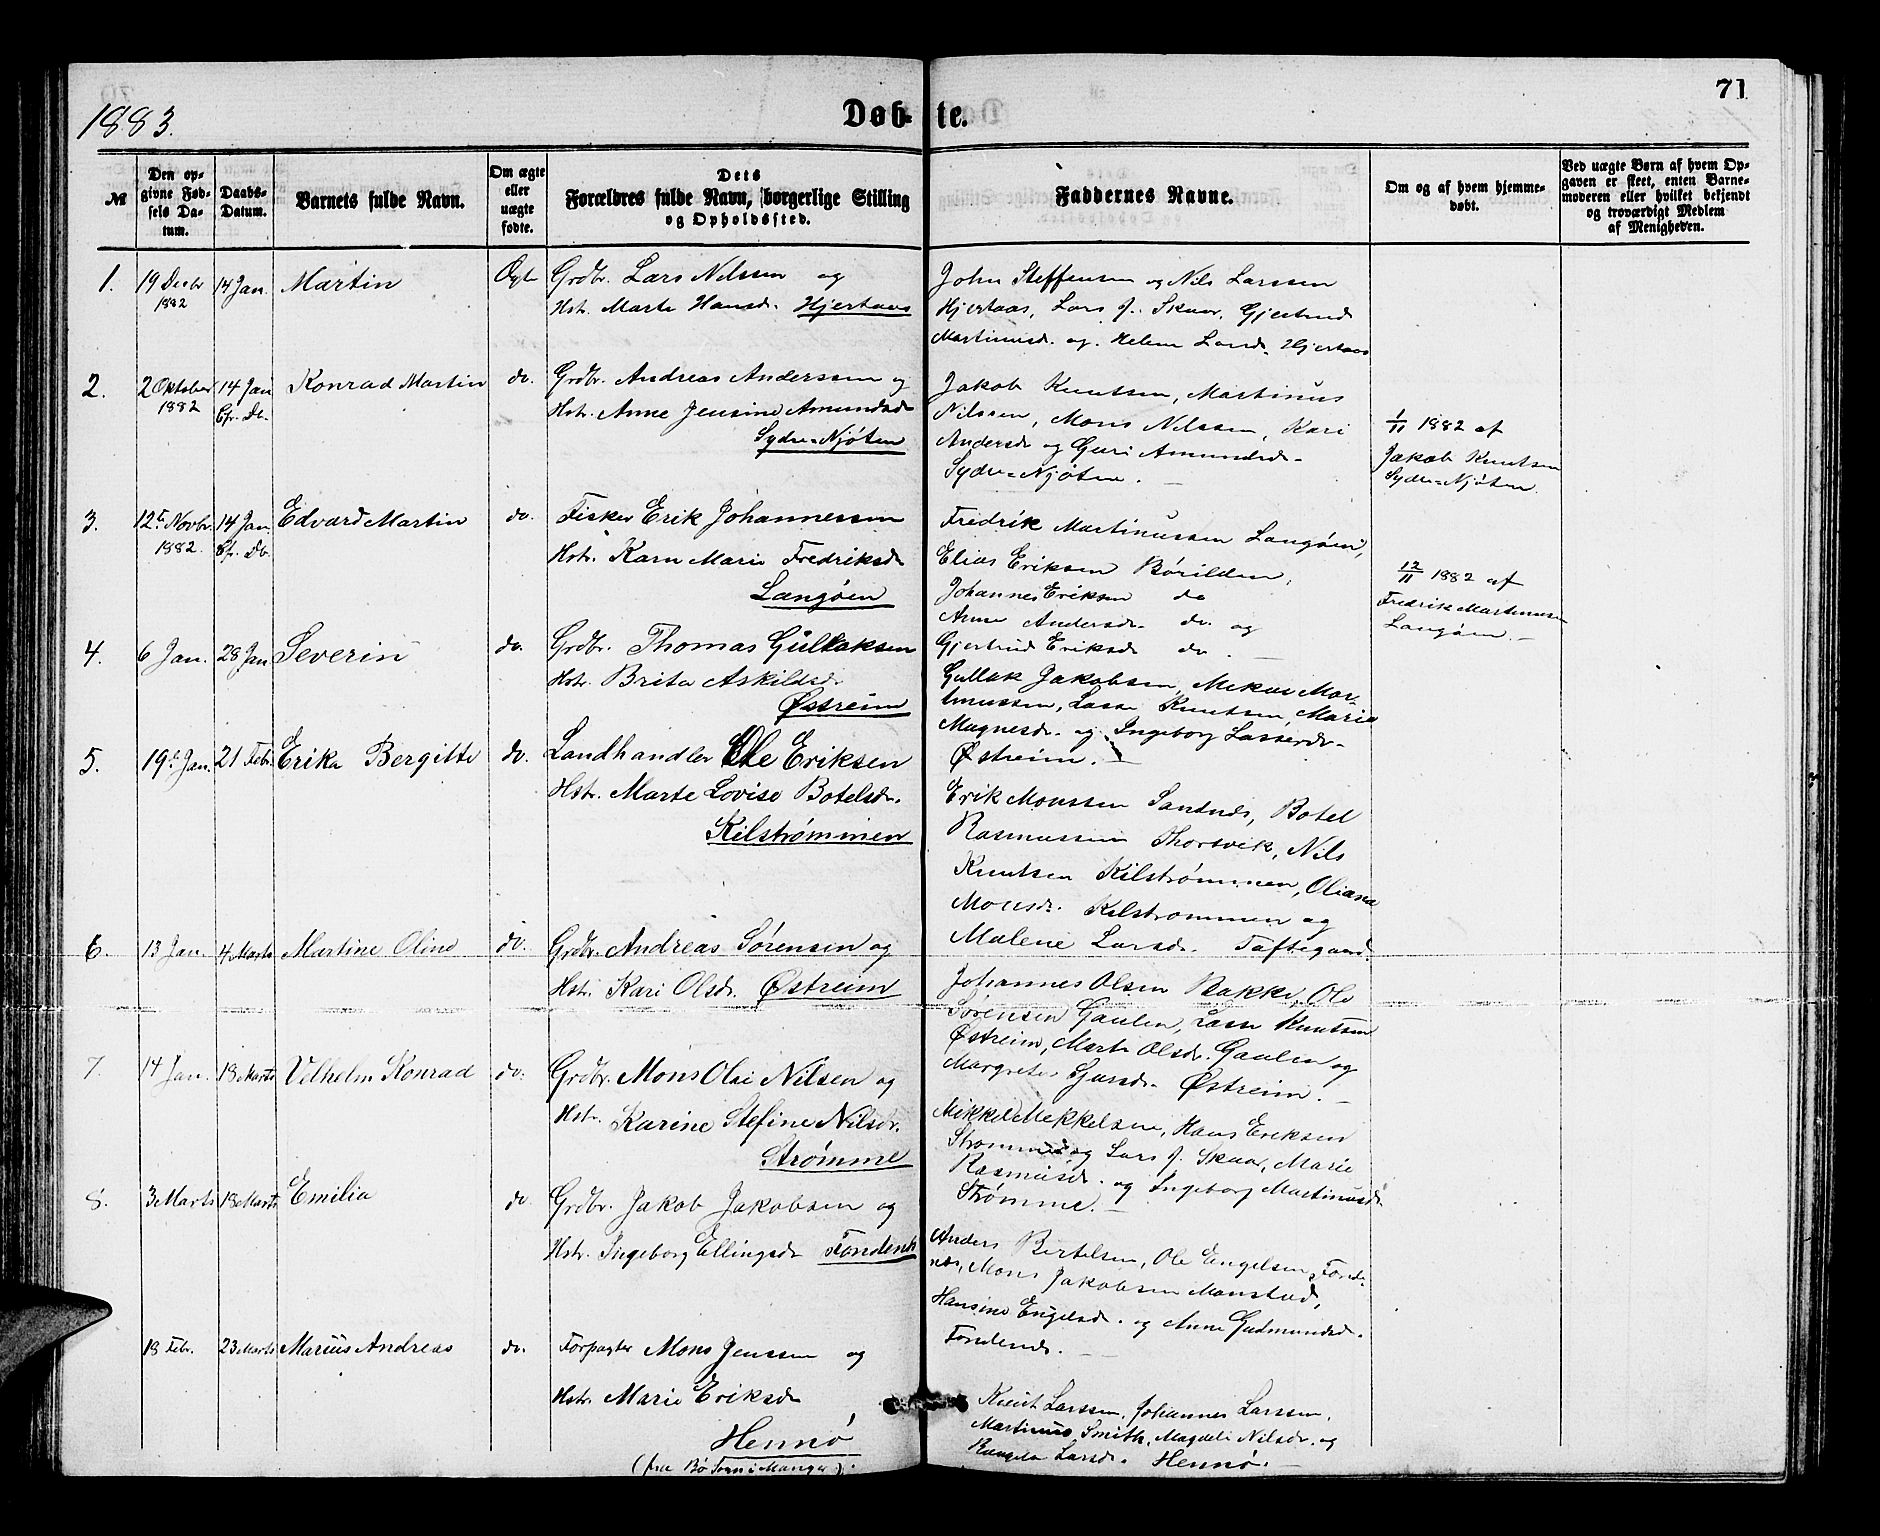 71
1883.
Døbte.
№
Den opgivne Fødsels Datum.
Daabs-Datum.
Barnets fulde Navn.
Om ægte eller uægte fødte.
Dets Forældres fulde Navn, borgerlige Stilling og Opholdssted.
Faddernes Navne.
Om og af hvem hjemmedøbt.
Ved uægte Børn af hvem Opgaven er skeet, enten Barnemoderen eller hvilket bekjendt og troværdigt Medlem af Menigheden.
1. 19 Decbr 1882 14 Jan. Martin Ægte
Grdbr. Lars Nilssen og
Hst. Marte Hansd. Hjertaas
John Steffensen og Nils Larssen
Hjertaas, Lars J. Skaar, Gjertrud
Martinusd. og Helene Larsd. Hjertaas
2. 2 Oktober 1882 14 Jan Cfr. Db. Konrad Martin do.
Grdbr. Andreas Anderssen og
Hstr. Anne Jensine Amundsd
Sydre-Njøten
Jakob Knutsen, Martinus
Nilssen, Mons Nilssen, Kari
Andersd og Guri Amundsd-
Sydre-Njøten.
1/11 1882 af
Jakob Knutsen
Sydre-Njøten.
3. 12te Novbr. 1882. 14 Jan. Cfr. Db. Edvard Martin do.
Fisker Erik Johannessen
Hstr. Karn Marie Fredriksd
Langøen
Fredrik Martinussen Langøen,
Elias Eriksen Børilden,
Johannes Eriksen do
Anne Andersd. do. og
Gjertrud Eriksd do.
12/11 1882 af
Fredrik Martinusen
Langøen.
4. 6 Jan. 28 Jan Severin do.
Grdbr. Thomas Gullaksen
Hstr. Brita Askildsd.
Østreim
Gullak Jakobsen, Mikal Mar-
tinussen, Lasse Knutsen, Marie
Magnesd. og Ingeborg Lassesd.
Østreim.
5. 19de Jan. 21 Febr. Erika Bergitte do.
Landhandler Ole Eriksen
Hstr. Marte Lovise Botelsd.
Kilstrømmen
Erik Monssen Santnes, Botel
Rasmussen Thorsvik, Nils
Knutsen Kilstrømmen, Oliana
Monsd. Kilstrommen og
Malene Larsd. Toftegaard.
6. 13 Jan. 4 Marts Martine Oline do.
Grdbr. Andreas Sørensen og
Hstr. Kari Olsd. Østreim
Johannes Olsen Bakke, Ole
Sørensen Gaulen, Lasse Knutsen
Østreim, Marte Olsd. Gaulen og
Margrete Sjursd. Østreim.
7. 14 Jan. 18 Marts Vilhelm Konrad do.
Grdbr. Mons Olai Nilsen og
Hstr. Karine Stefine Nilsd.
Strømme
Mikkel Mekkelsen, Hans Eriksen
Strømme og Lars J. Skaar, Marie
Rasmusd. og Ingeborg Martinusd.
Strømme.
8. 3 Marts 18 Marts Emilia do.
Grdbr. Jakob Jakobsen og
Hstr. Ingeborg Ellingsd Fondenes
Anders Bertelsen, Ole Engelsen, Fonde-
nes, Mons Jakobsen Monstad,
Hansine Engelsd. og Anne Gudmundsd.
Fondenes.
18 Febr. 23 Marts Marius Andreas do.
Forpagter Mons Jenssen og
Hstr. Marie Eriksd
Hennø
(fra Bø Sogn i Manger).
Knut Larssen, Johannes Larssen,
Martinus Smith, Magdeli Nilsd. og
Rangela Larsd. Hennø.